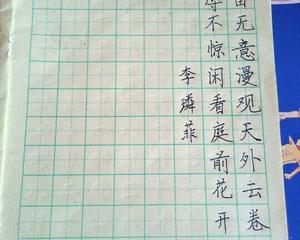 无意漫观天外云卷
不惊闲看庭前花开
李璘菲